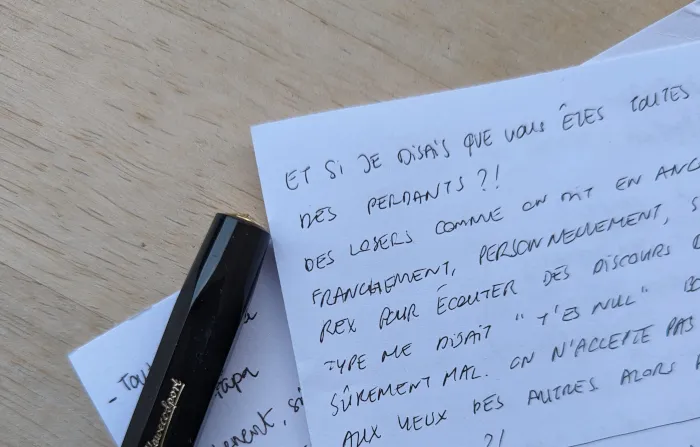 ET SI JE DISAIS QUE VOUS ÊTES TOUTES
DES PERDANTS ?!
DES LOSERS COMME ON DIT EN ANG
FRANCHEMENT, PERSONNELLEMENT, S
REX POUR ÉCOUTER DES DISCOURS
TYPE ME DISAIT " T'ES NUL"
SÛREMENT MAL. ON N'ACCEPTE PAS
AUX YEUX DES AUTRES ALORS
?!
- Tou
apa
nement, si
Kawecosport